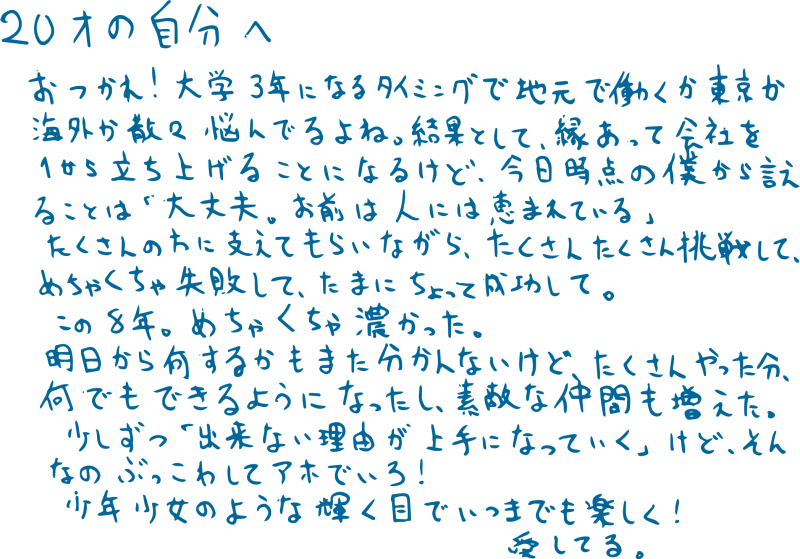 20才の自分へ
おつかれ！大学3年になるタイミングで地元で働くか東京か
海外か散々悩んでるよね。結果として、縁あって会社を
1から立ち上げることになるけど、今日時点の僕から言え
ることは「大丈夫。お前は人には恵まれている」
たくさんのわに支えてもらいながら、たくさんたくさん挑戦して、
めちゃくちゃ失敗して、たまにちょって成功して。
この8年。めちゃくちゃ濃かった。
明日から何するかもまた分かんないけど、たくさんやった分、
何でもできるようになったし、素敵な仲間も増えた。
少しずつ「出来ない理由が上手になっていく」けど、そん
なのぶっこわしてアホでいろ！
少年少女のような輝く目でいつまでも楽しく！
愛してる。